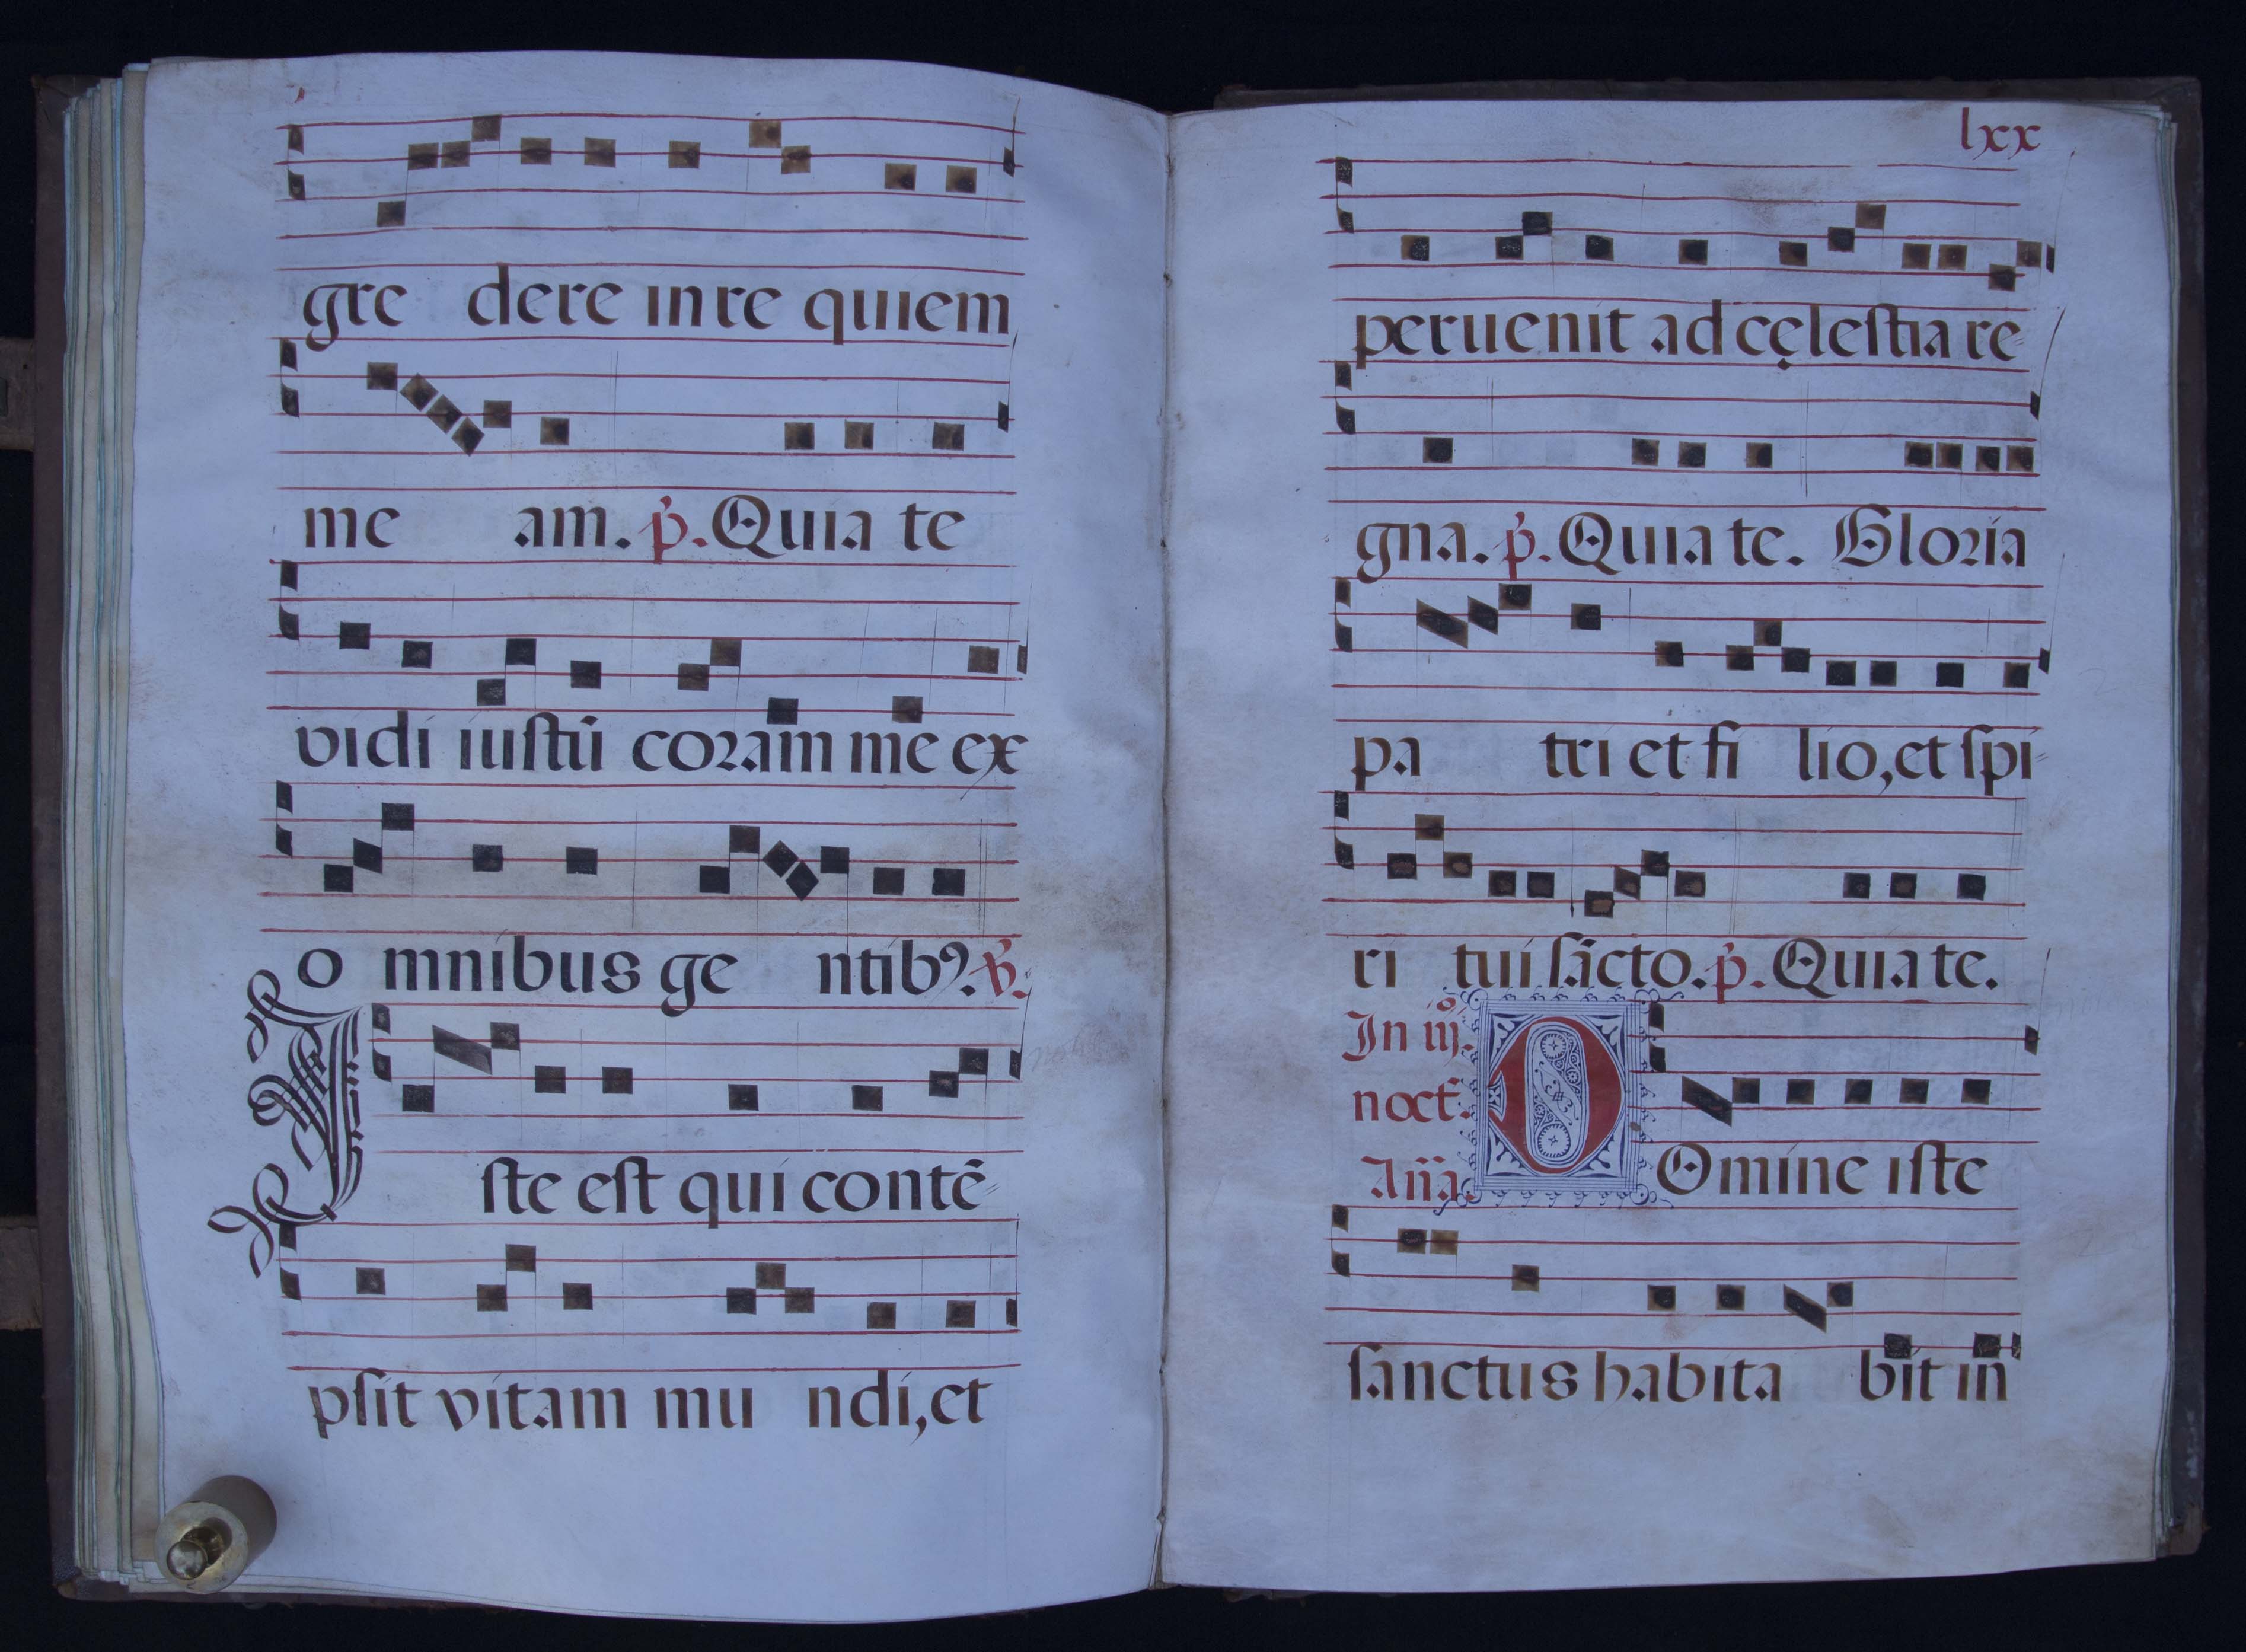 gre dere in re quiem
me am. p̄. Quia te
vidi iustū coram me ex
o mnibus ge ntibꝰ. ℣.
Iste est qui contē-
psit vitam mu ndi, et
lxx
peruenit ad cęlestia re-
gna. p̄. Quia te. Gloria
pa tri et fi lio, et spi-
ri tui sācto. p̄. Quia te.
In iij.º
noct.
Aña.
DOmine iste
sanctus habita bit in